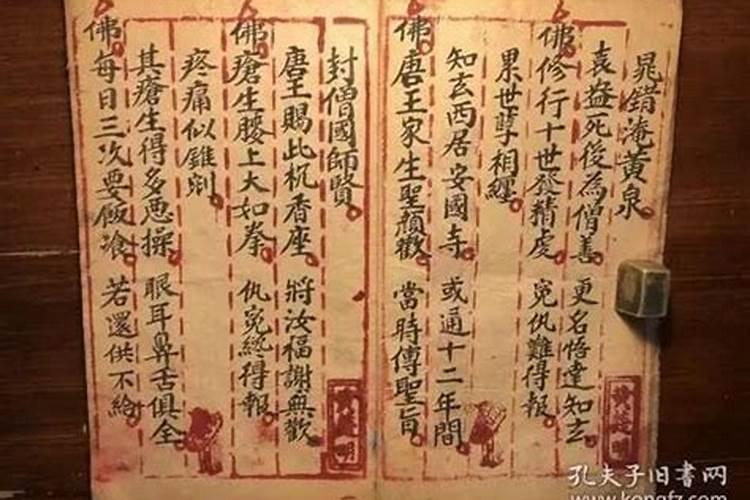 晁錯淹黃泉
袁盎死後為僧善 更名悟達知玄
佛修行十世發精虔 寃仇難得報
累世孽相纏
知玄西居安國寺 或通十二年間
佛唐王家生聖顏歡 當時傳聖旨
封僧國師賢
唐王賜此杌香座 將汝福謝無歡
佛瘡生腰上大如拳 仇寃總得報
疼痛似錐剜
其瘡生得多恶操 眼耳鼻舌俱全
佛每日三次要飯飡 若還供不給
孔夫子旧書网
www.kongfz.com